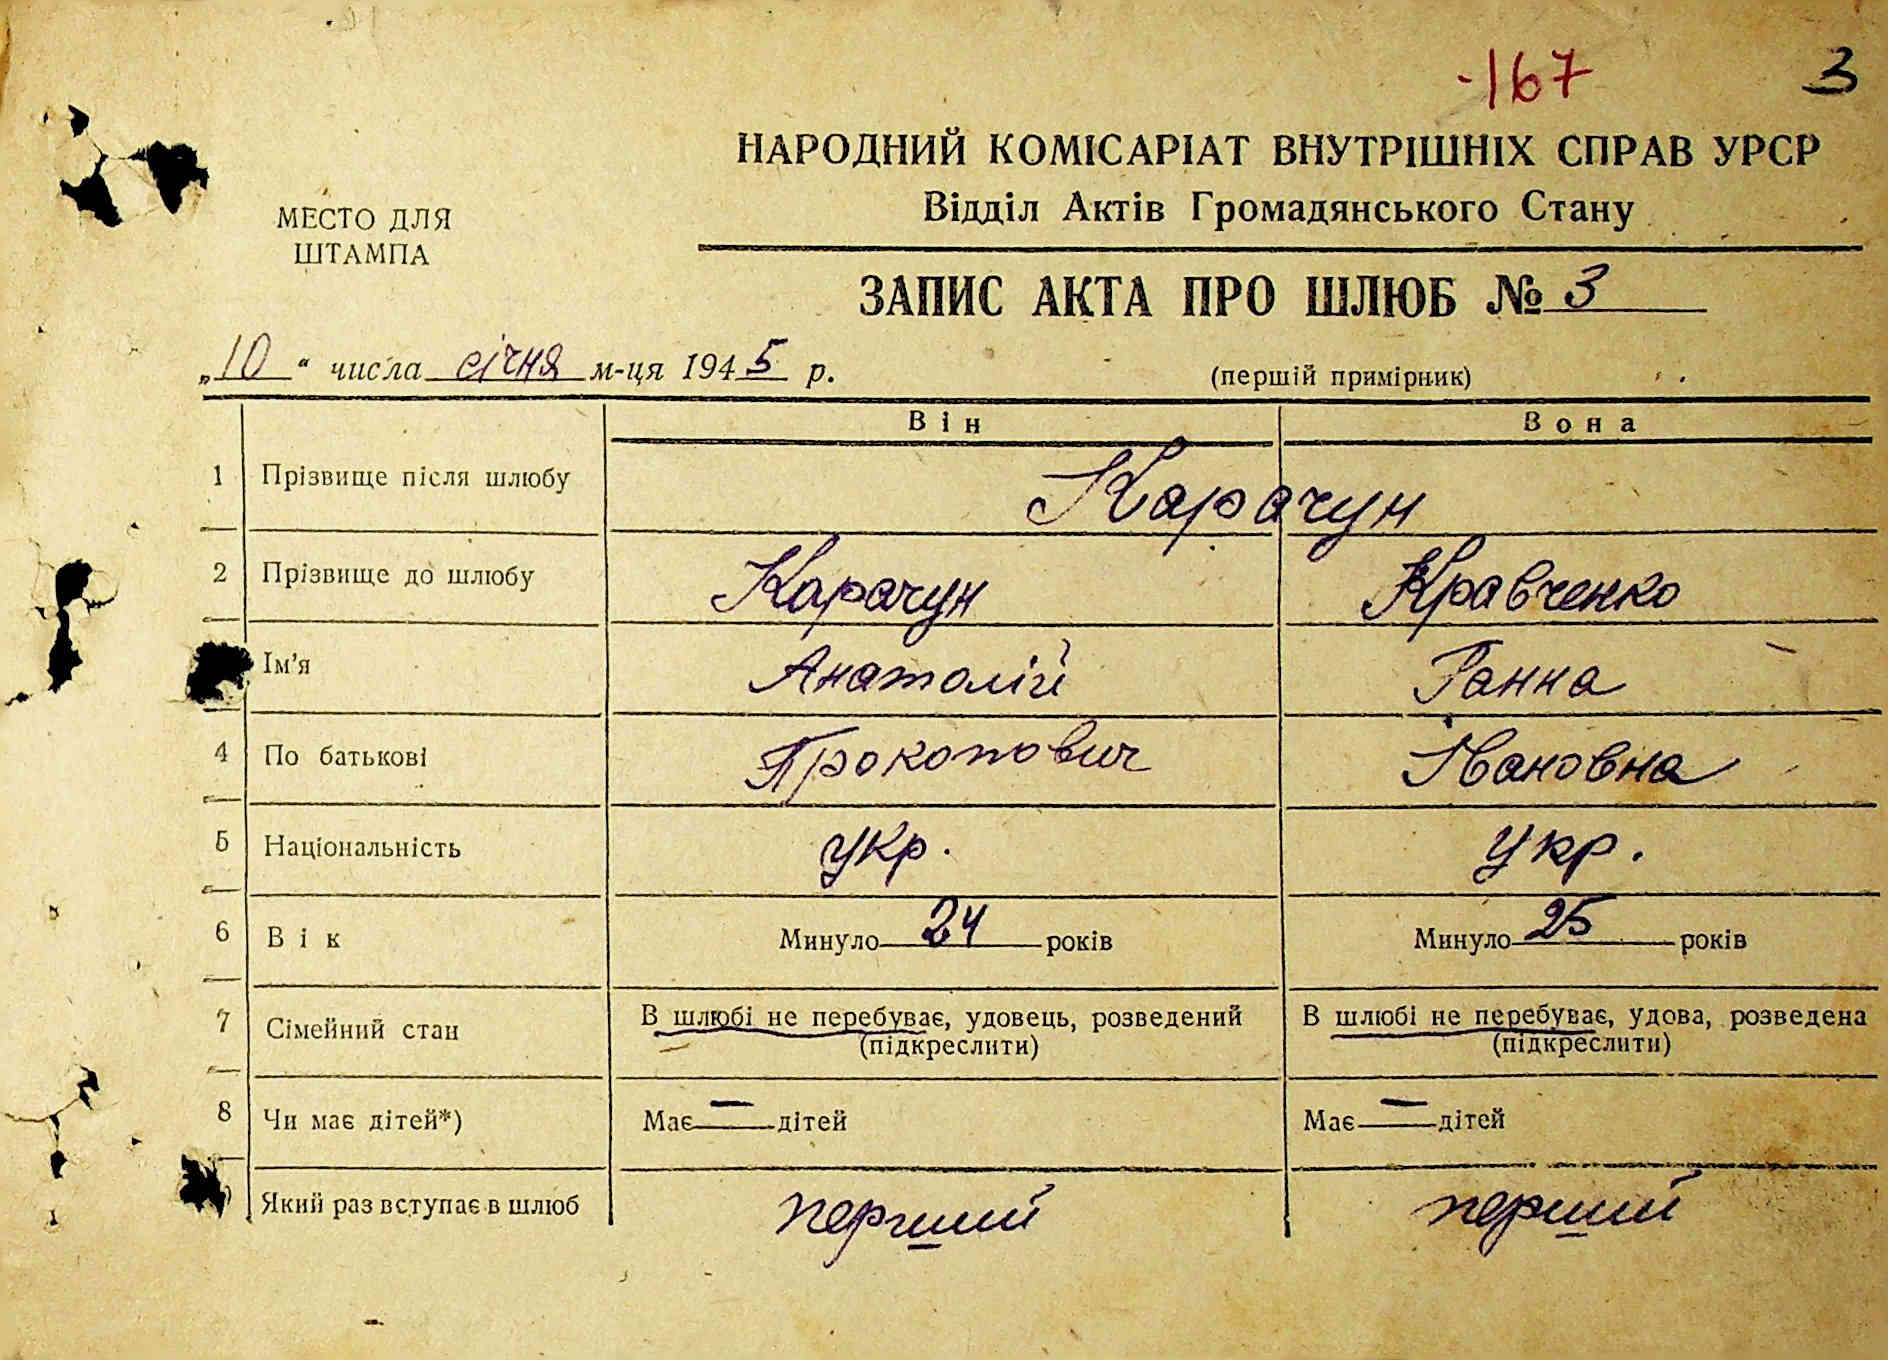 -167
3
НАРОДНИЙ КОМІСАРІАТ ВНУТРІШНІХ СПРАВ УРСР
Відділ Актів Громадянського Стану
МЕСТО ДЛЯ
ШТАМПА
ЗАПИС АКТА ПРО ШЛЮБ № 3
„10“ числа січня м-ця 1945 р.
(першій примірник)
Він Вона
1 Прізвище після шлюбу Карачун
2 Прізвище до шлюбу Карачун Кравченко
Ім'я Анатолій Ганна
4 По батькові Прокопович Івановна
5 Національність укр. укр.
6 Вік Минуло 24 років Минуло 25 років
7 Сімейний стан В шлюбі не перебуває, удовець, розведений В шлюбі не перебуває, удова, розведена
(підкреслити) (підкреслити)
8 Чи має дітей*) Має — дітей Має — дітей
Який раз вступає в шлюб перший перший